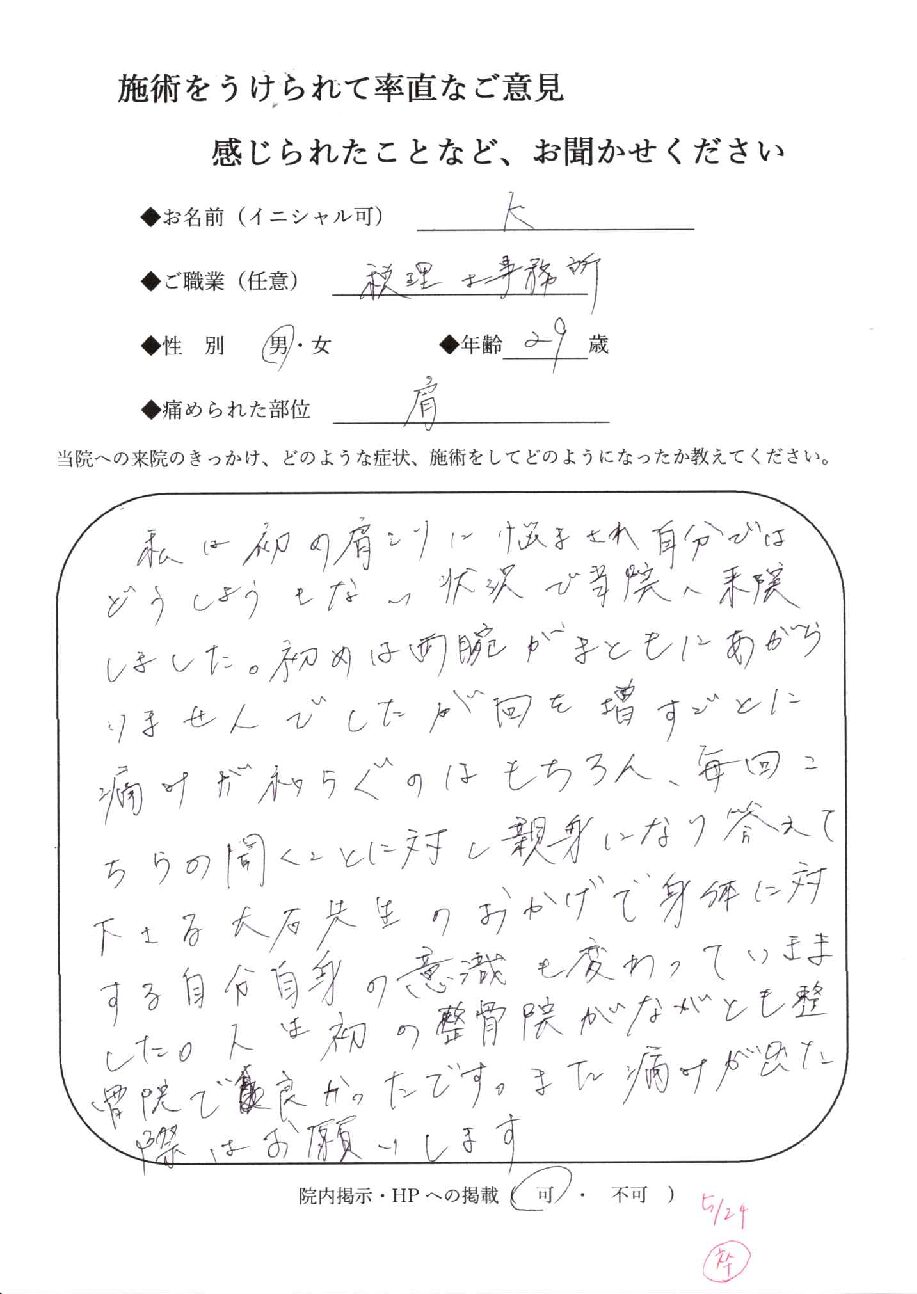 施術をうけられて率直なご意見
感じられたことなど、お聞かせください
◆お名前（イニシャル可） K
◆ご職業（任意） 税理士事務所
◆性　別　男・女　◆年齢 29 歳
◆痛められた部位 肩
当院への来院のきっかけ、どのような症状、施術をしてどのようになったか教えてください。
私は初の肩こりに悩まされ自分では
どうしようもない状況で当院へ来院
しました。初めは両腕がまともにあがら
りませんでしたが回を増すごとに
痛みが和らぐのはもちろん、毎回こ
ちらの聞くことに対し親身になり答えて
下さる大石先生のおかげで身体に対
する自分自身の意識も変わっていきま
した。人生初の整骨院がながとも整
骨院で良かったです。また痛みが出た
際はお願いします
院内掲示・HPへの掲載（　可　・　不可　）
5/24